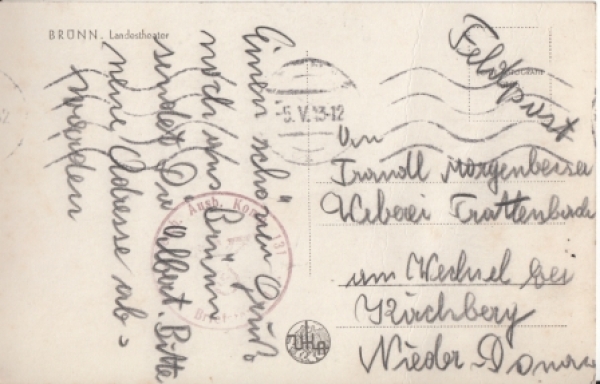 BRÜNN. Landestheater
Einen schönen Gruß
noch aus Brünn
sendet Dir Albert. Bitte
neue Adresse ab-
warten
Feldpost
5. V. 43-12
An
Trandl Morgenbesser
Weberei Trattenbach
am Wechsel bei
Kirchberg
Nieder Donau
Ausb. Kom 131
Brief